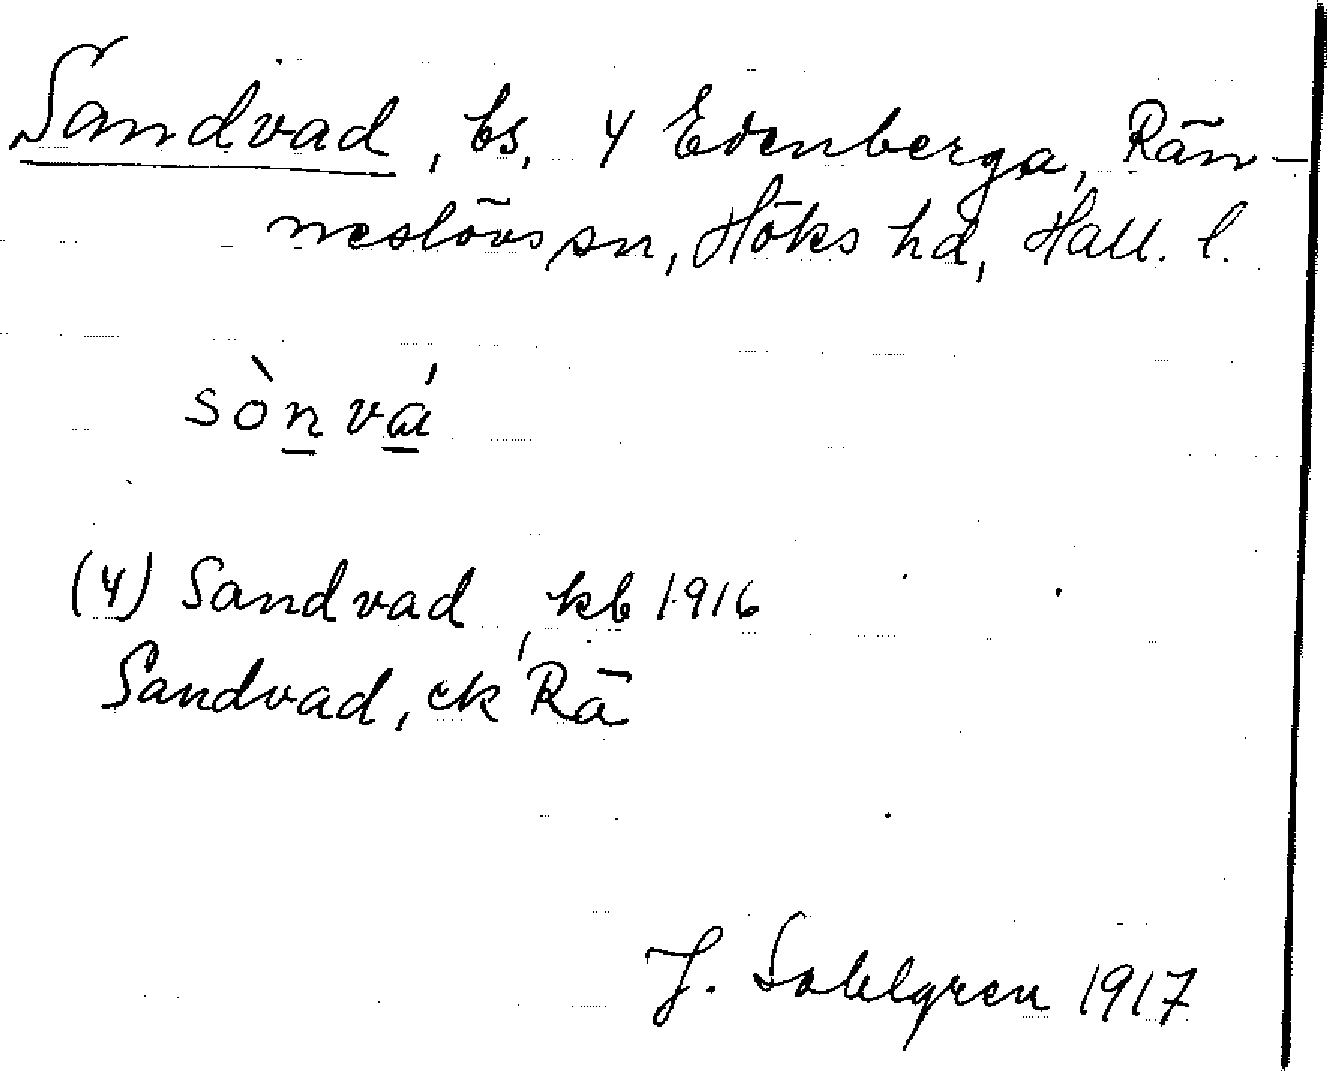 Sandvad, bs, 4 Edenberga, Rän-
neslövs sn, Höks hd, Hall. l.
sònvá
(4) Sandvad, kb 1916
Sandvad, ek Rä
J. Sahlgren 1917